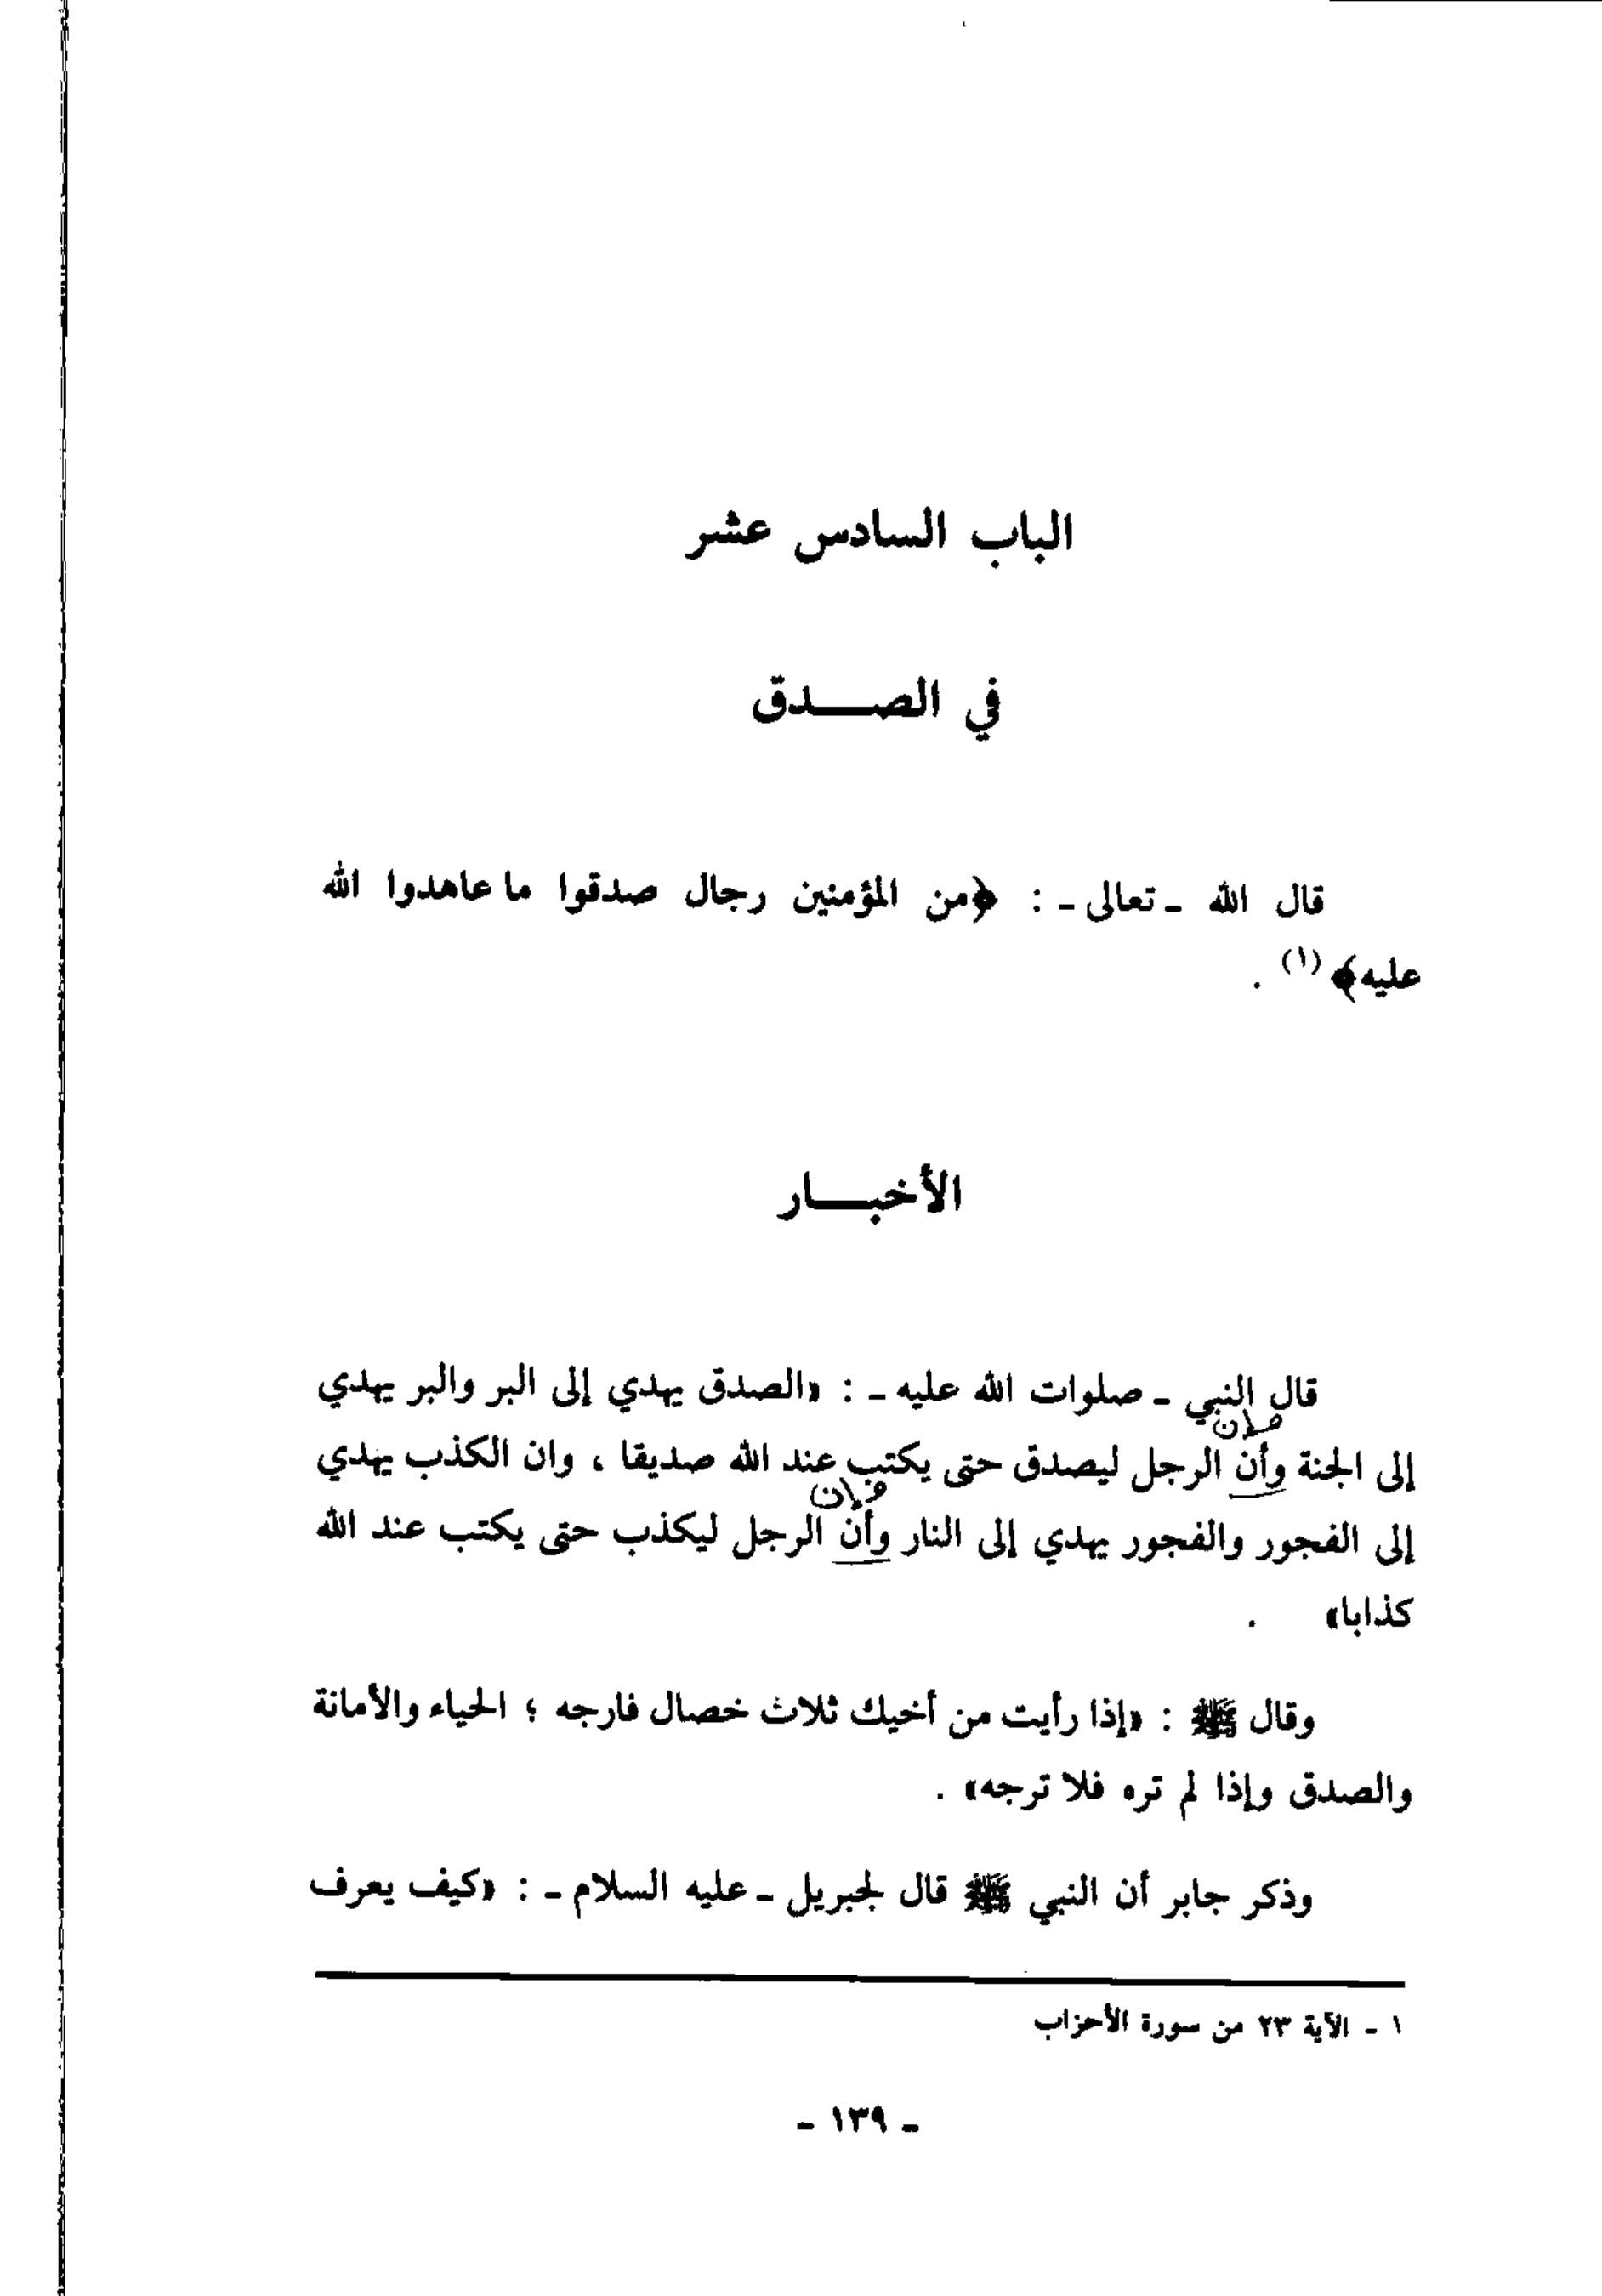 الباب السادس عشر
في الصـــدق
قال الله ـ تعالى ـ : ﴿من المؤمنين رجال صدقوا ما عاهدوا الله
عليه﴾(١) .
الأخبـــار
قال النبي ـ صلوات الله عليه ـ : «الصدق يهدي إلى البر والبر يهدي
إلى الجنة وأن الرجل ليصدق حتى يكتب عند الله صديقا ، وان الكذب يهدي
إلى الفجور والفجور يهدي إلى النار وأن الرجل ليكذب حتى يكتب عند الله
كذابا» .
وقال ﷺ : «إذا رأيت من أخيك ثلاث خصال فارجه ؛ الحياء والأمانة
والصدق وإذا لم تره فلا ترجه» .
وذكر جابر أن النبي ﷺ قال لجبريل ـ عليه السلام ـ : «كيف يعرف
١ ـ الآية ٢٣ من سورة الأحزاب
ـ ١٣٩ ـ